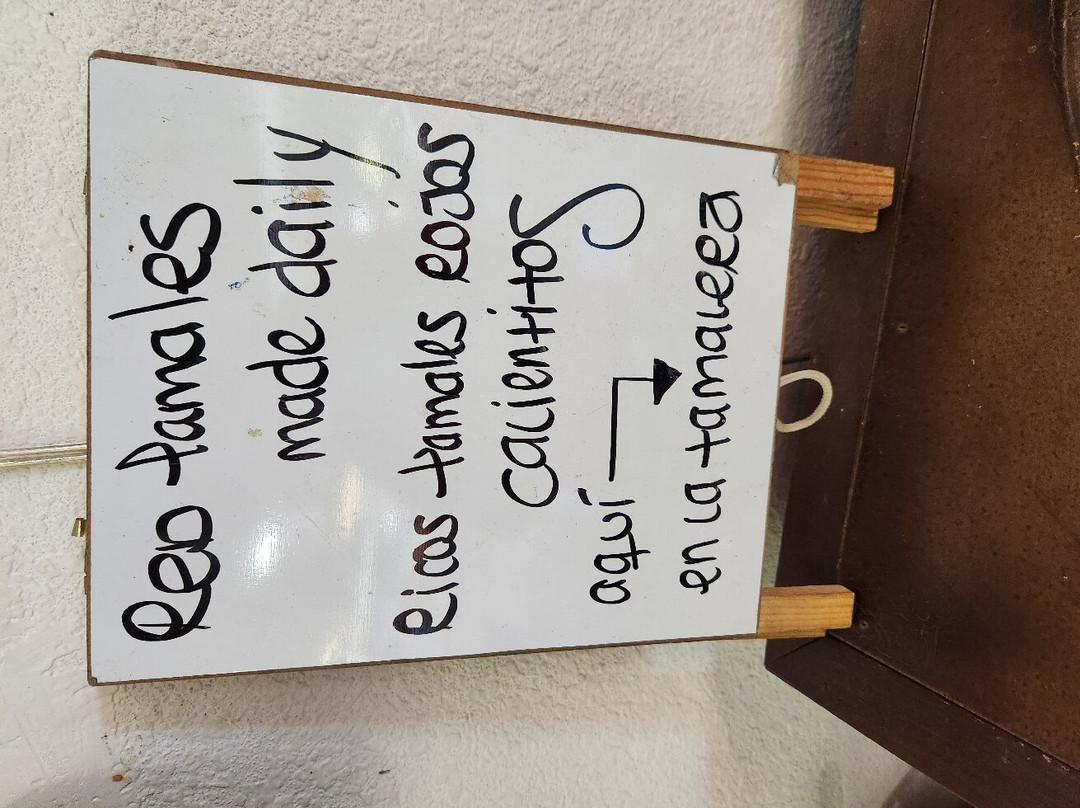 Red tamales
made daily
Ricos tamales rojos
calientitos
aquí
en la tamalera